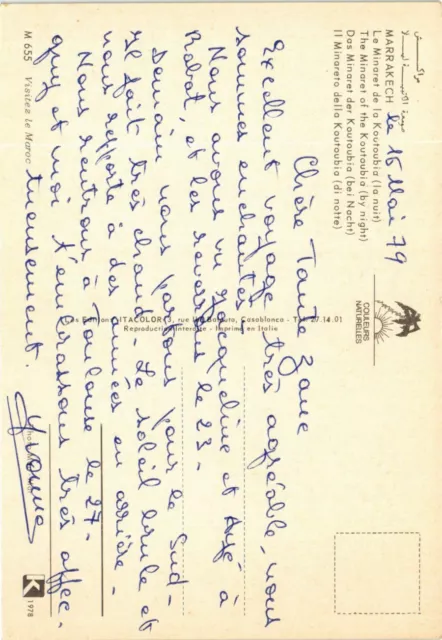 MARRAKECH le 16 Mai 79
Le Minaret de la Koutoubia (la nuit)
The Minaret of the Koutoubia (by night)
Das Minaret der Koutoubia (bei Nacht)
Il Minareto della Koutoubia (di notte)
COULEURS
NATURELLES
Chère Tante Zane
Excellent voyage très agréable, nous
sommes enchantés
Nous avons vu Jacqueline et à
Rabat, et les reverrons le 23 -
Demain nous partons pour le Sud -
Il fait très chaud - Le soleil brule et
nous reporte à des années en arrière -
Nous rentrons à Toulouse le 27 -
Guy et moi t'embrassons très affec-
tueusement.
Yvonne
Les Editions ITACOLOR 3, rue Casablanca - Tél. 27.14.01
Reproduction interdite - Imprimé en Italie
M 655 Visitez le Maroc
K 1978